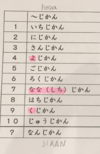 hora
〜じかん
1 いちじかん
2 にじかん
3 さんじかん
4 よじかん
5 ごじかん
6 ろくじかん
7 なな(しち)じかん
8 はちじかん
9 くじかん
10 じゅうじかん
? なんじかん
JIKAN